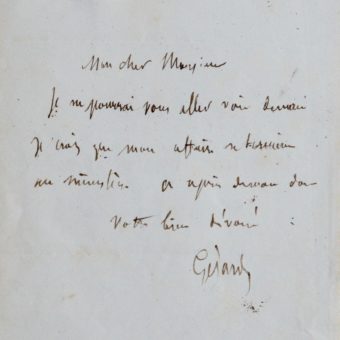 Mon cher Monsieur
Je ne pourrai vous aller voir demain
je crois que mon affaire se termine
au ministère. a après demain donc
votre bien dévoué
Gérard